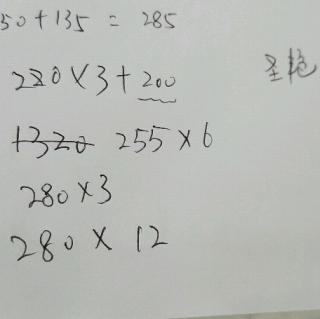 50+135=285
220×3+200
圣枪
1320 255×6
280×3
280×12